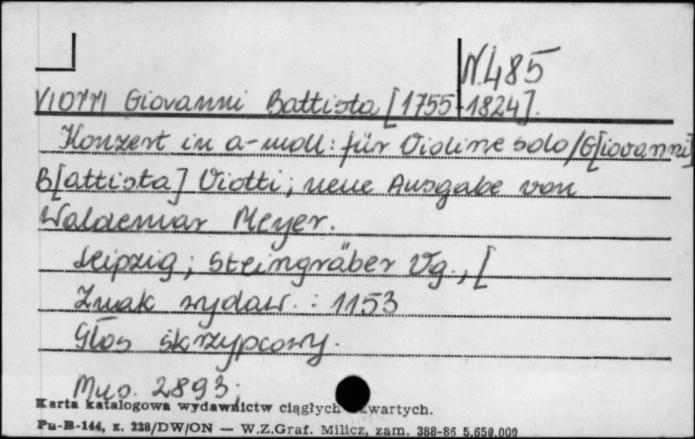 N.485
VIOTTI Giovanni Battista [1755-1824].
Konzert in a-moll: für Violine solo/G[iovanni]
B[attista] Viotti; neue Ausgabe von
Waldemar Meyer.
Leipzig; Steingräber Vg., [
Znak wydaw. : 1153
Głos skrzypcowy.
Mus. 2893;
Karta katalogowa wydawnictw ciągłych zwartych.
Pu-B-144, z. 228/DW/ON — W.Z.Graf. Milicz, zam. 388-86 5.650.000